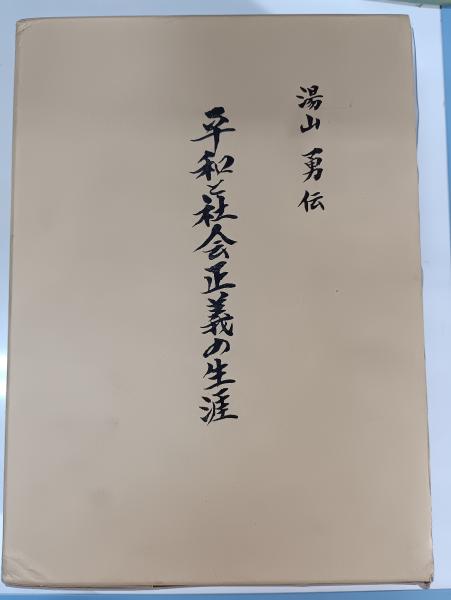 湯山 勇伝
平和と社会正義の生涯